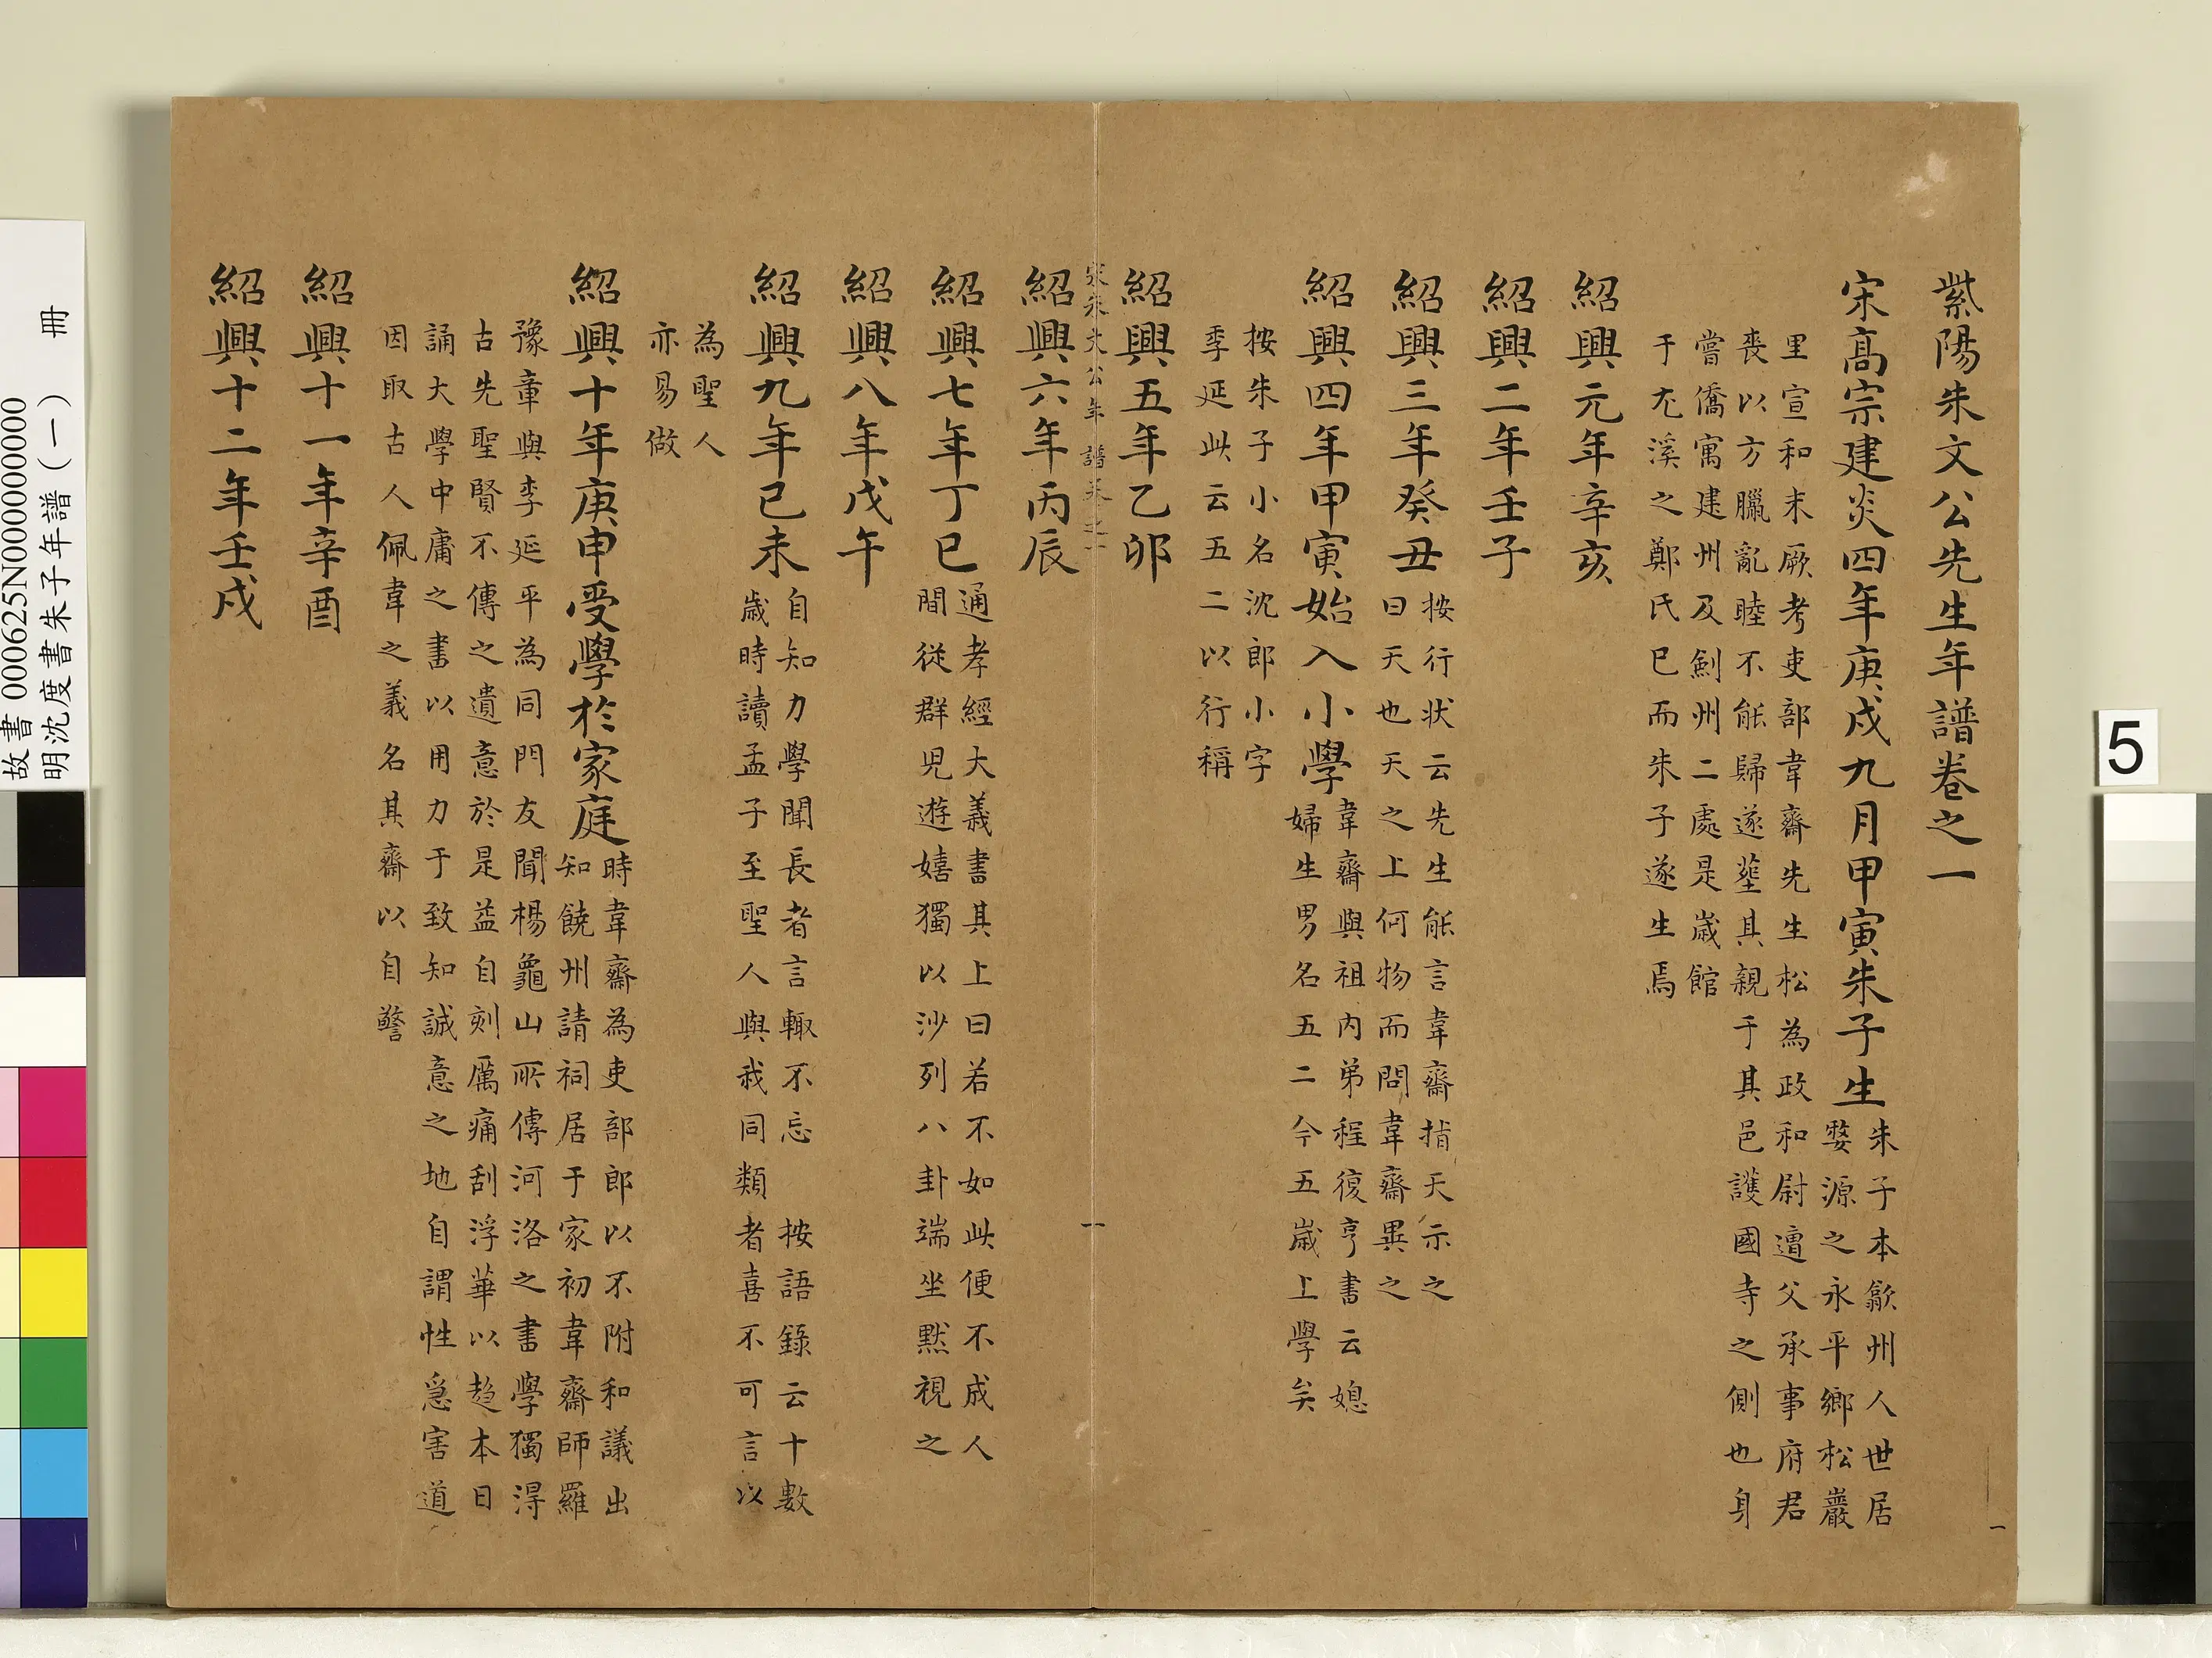 紫陽朱文公先生年譜卷之一
宋髙宗建炎四年庚戌九月甲寅朱子生
朱子本歙州人世居
婺源之永平鄉松巖
里宣和末厥考吏部韋齋先生松為政和尉遭父承事府君
喪以方臘亂睦不能歸遂塟其親于其邑護國寺之側也身
嘗僑寓建州及劍州二處是歲館
于尤溪之鄭氏巳而朱子遂生焉
紹興元年辛亥
紹興二年壬子
紹興三年癸丑
按行状云先生能言韋齋指天示之
曰天也天之上何物而問韋齋異之
紹興四年甲寅始入小學
韋齋與祖内弟程復亨書云媳
婦生男名五二今五歲上學矣
按朱子小名沈郎小字
季延此云五二以行稱
紹興五年乙卯
宋朱文公年譜卷之一
一
紹興六年丙辰
紹興七年丁巳
通孝經大義書其上曰若不如此便不成人
間從群児遊嬉獨以沙列八卦端坐黙視之
紹興八年戊午
紹興九年已未
自知力學聞長者言輙不忘 按語錄云十數
歲時讀孟子至聖人與我同類者喜不可言以
為聖人
亦易做
紹興十年庚申受學於家庭
時韋齋為吏部郎以不附和議出
知饒州請祠居于家初韋齋師羅
豫章與李延平為同門友聞楊龜山所傳河洛之書學獨淂
古先聖賢不傳之遺意於是益自刻厲痛刮浮華以趋本日
誦大學中庸之書以用力于致知誠意之地自謂性急害道
因取古人佩韋之義名其齋以自警
紹興十一年辛酉
紹興十二年壬戌
一
5
故書 000625N000000000
明沈度書朱子年譜（一） 冊